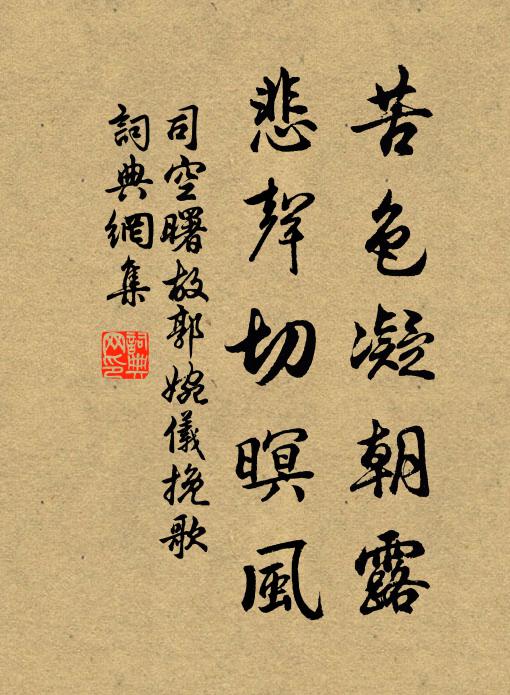 苦色凝朝露
悲聲切暝風
司空曙故郭婉儀挽歌
詞典網集
詞典網印